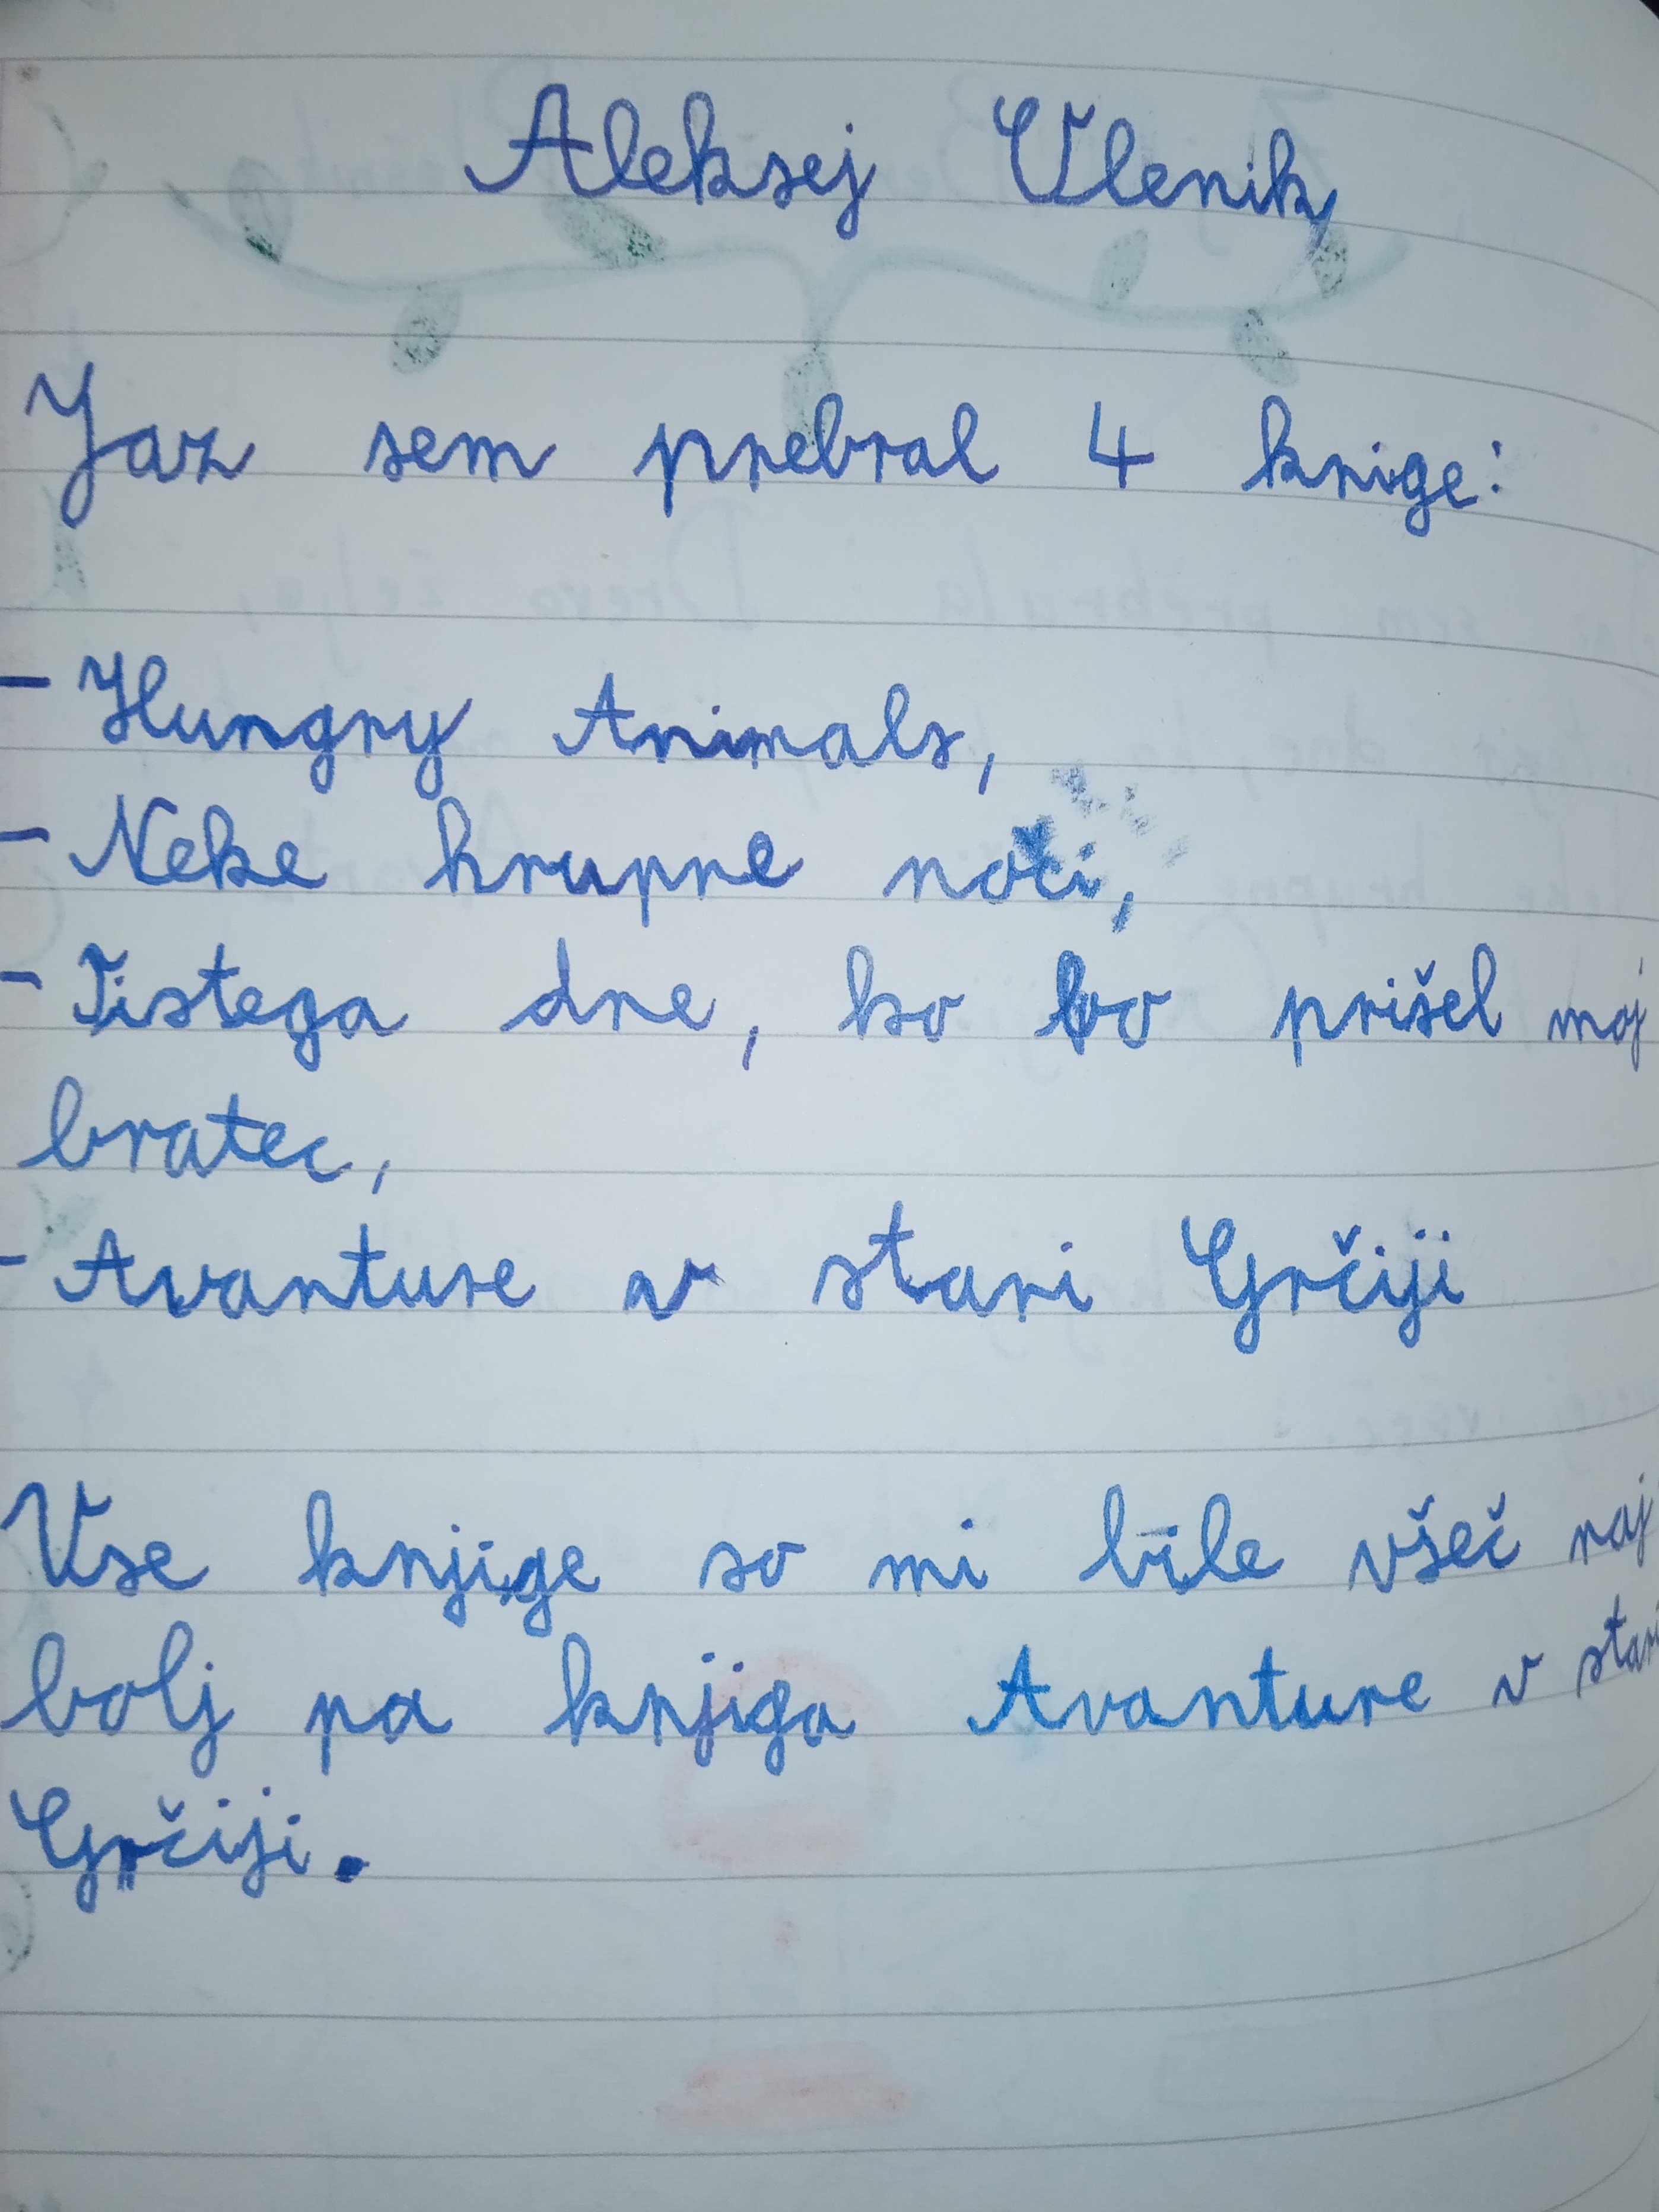 Aleksej Vlenik
Jaz sem prebral 4 knige:
- Hungry Animals,
- Neke hrupne noči,
- Tistega dne, ko bo prišel moj
bratec,
- Avanture v stari Grčiji
Vse knjige so mi bile všeč naj
bolj pa knjiga Avanture v stari
Grčiji.